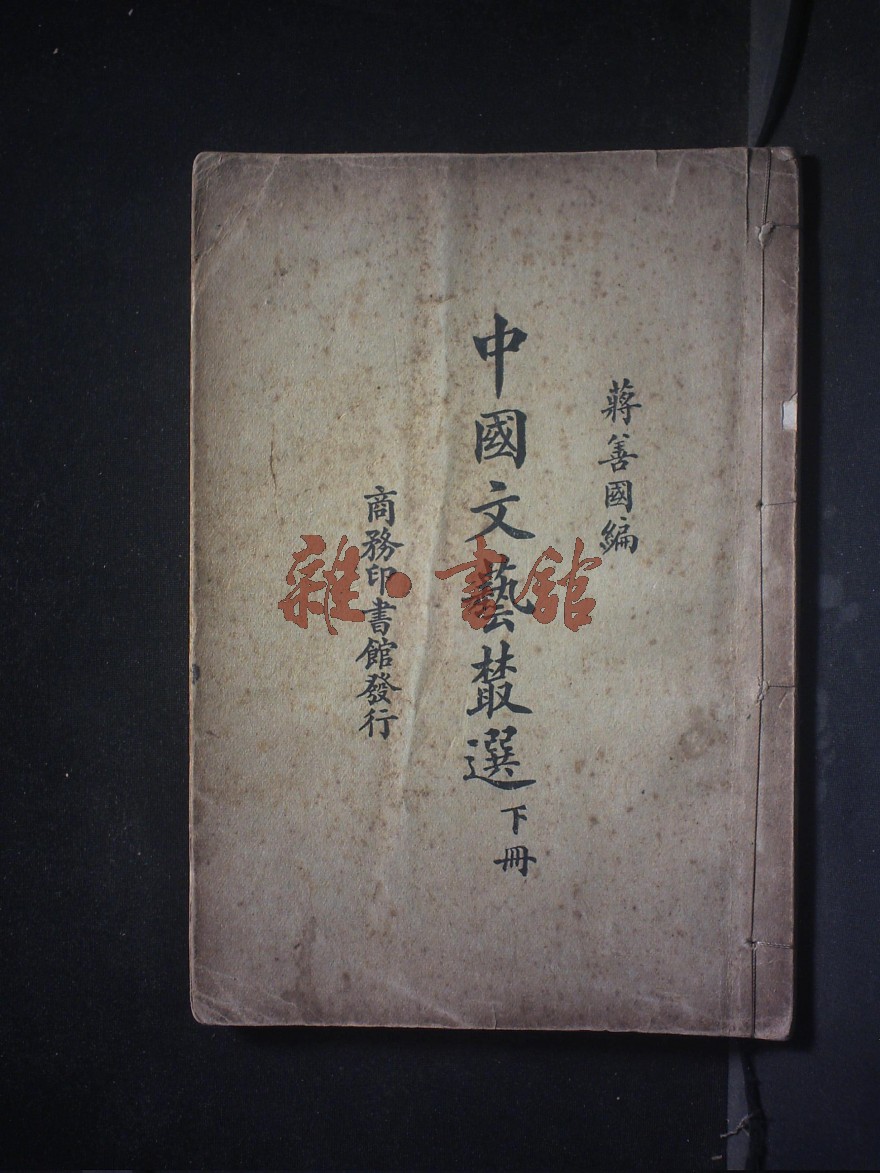 蔣善國編
中國文藝叢選下冊
商務印書館發行
雜·書館